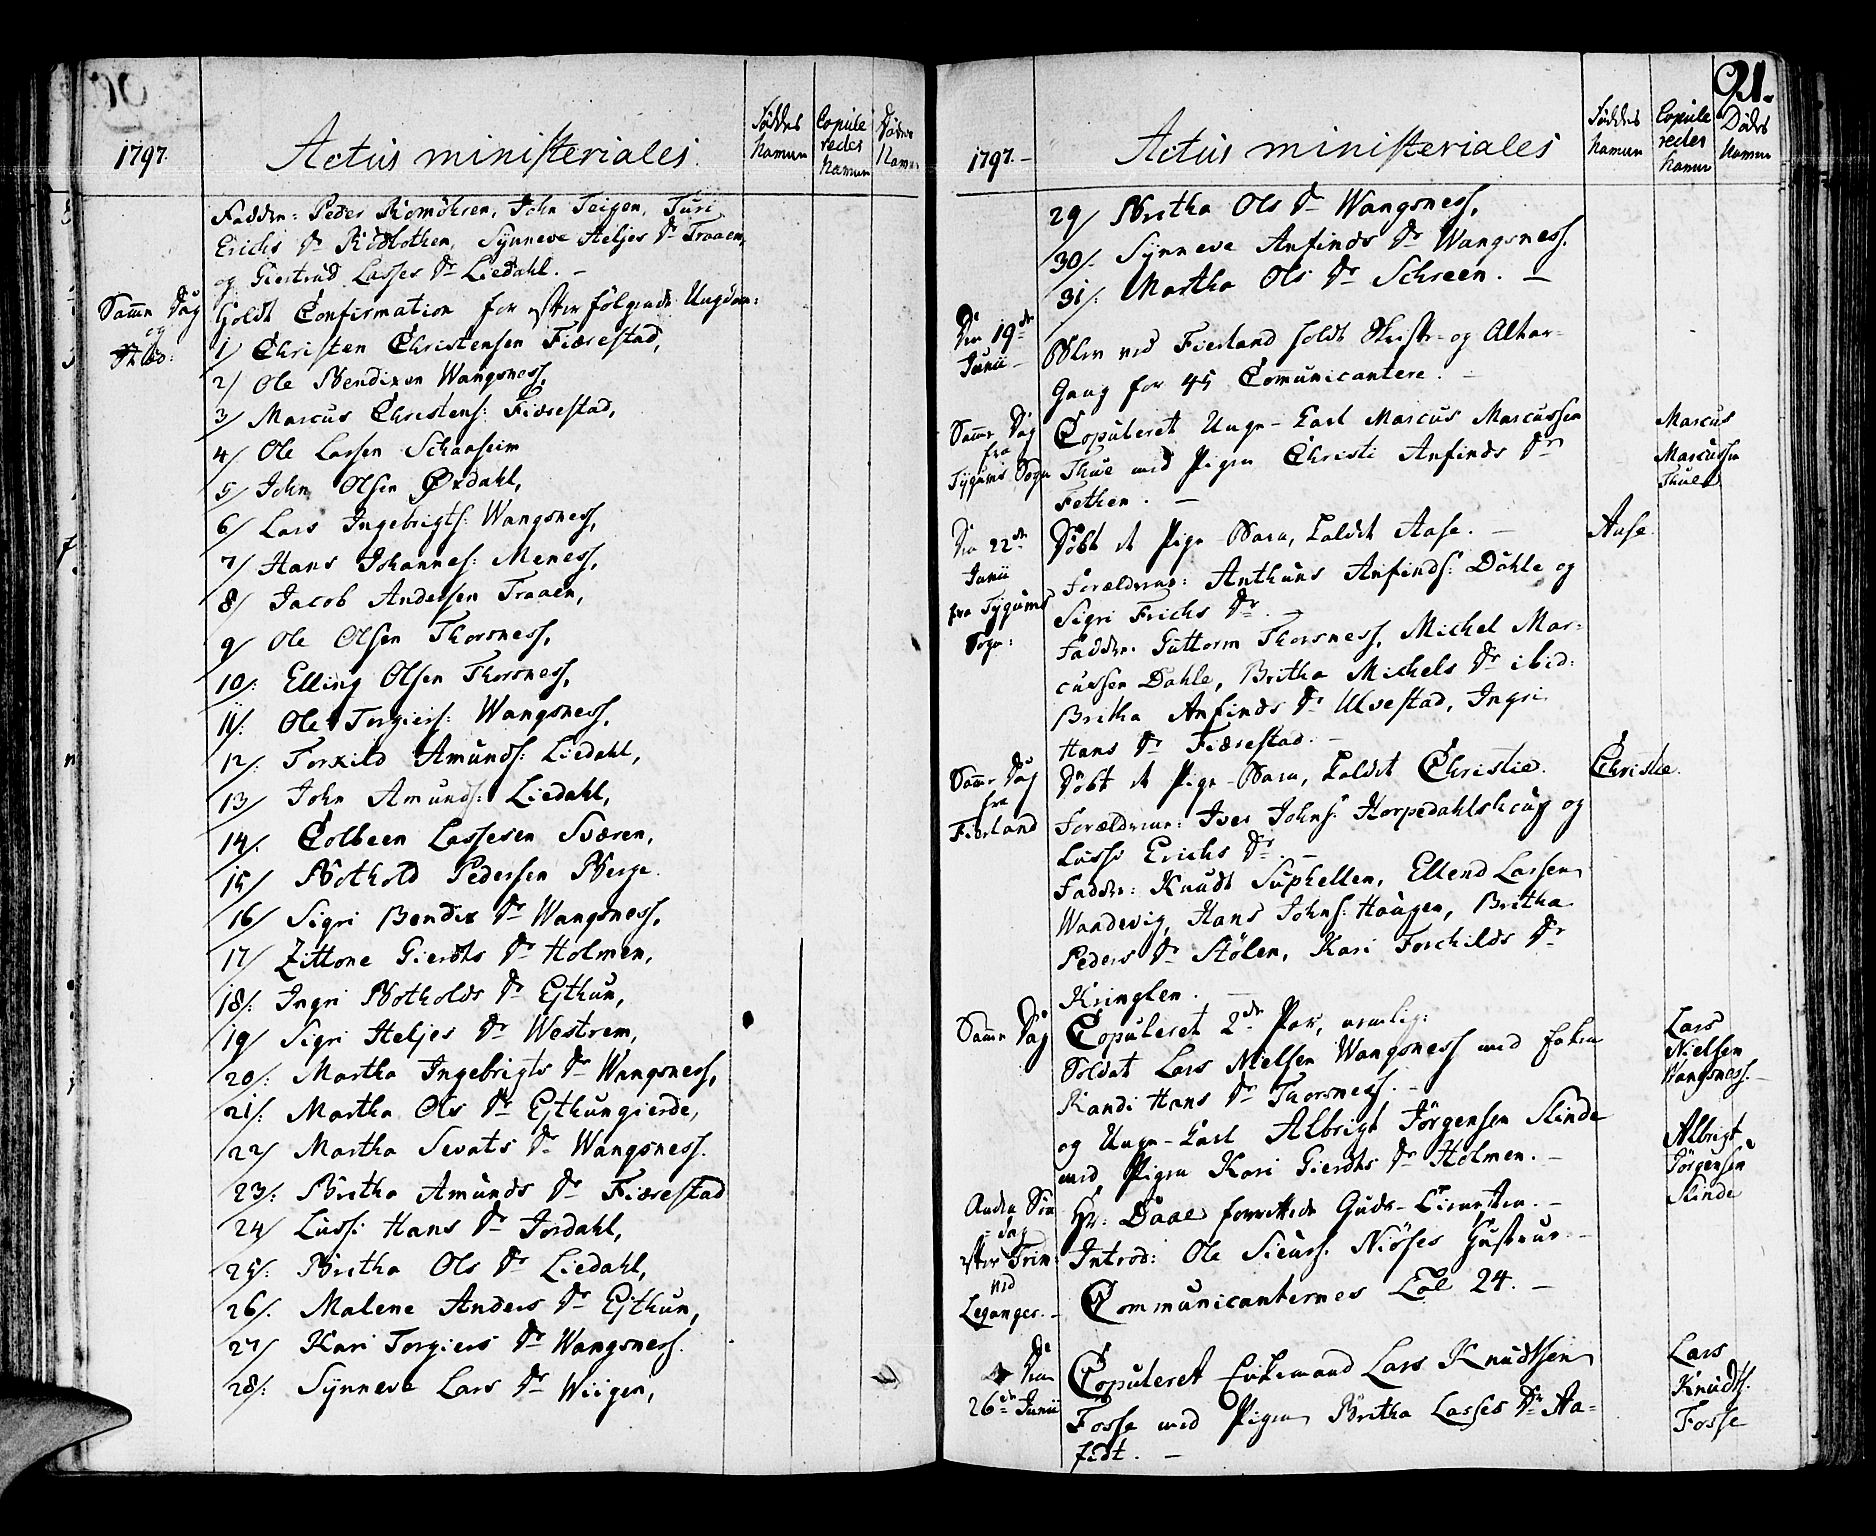 1797.
Actus ministeriales.
Föddes Namne
Copuleredes Namne
Dödes Namne
Faddere: Peder Romöhren, John Teigen, Turi
Erichs Dr Rödbothen, Synneve Heljes Dr Traaen,
og Giertrud Lasses Dr Liedahl. –
Samme Dag og Sted:
Holdt Confirmation for efterfölgende Ungdom:
1/ Christen Christensen Fiærestad,
2/ Ole Bendixen Wangsness,
3/ Marcus Christens: Fiærestad,
4/ Ole Larsen Schaasheim
5/ John Olsen Øxdahl,
6/ Lars Ingebrigts: Wangsness,
7/ Hans Johannes: Meness,
8/ Jacob Andersen Traaen,
9/ Ole Olsen Thorsness,
10/: Elling Olsen Thorsness,
11/: Ole Torgiers: Wangsness,
12/: Torkild Amunds: Liedahl,
13/ John Amunds: Liedahl,
14/: Colbeen Lassesen Sværen,
15/ Bothold Pedersen Berge.
16/ Sigri Bendix Dr Wangsness,
17/ Zittone Gierdts Dr Holmen,
18/: Ingri Botholds Dr Ejthun,
19/ Sigri Heljes Dr Westrem,
20/: Martha Ingebrigts Dr Wangsness,
21/: Martha Ols Dr Ejthungierde,
22/ Martha Sevats Dr Wangsness.
23/: Britha Amunds Dr Fiærestad
24/ Lussi Hans Dr Jordahl,
25/: Britha Ols Dr Liedahl,
26/: Malene Anders Dr Ejthun,
27/ Kari Torgiers Dr Wangsness.
28/: Synneve Lars Dr Wiigen,
91.
1797. –
Actus ministeriales
Föddes Namne
Copuleredes Namne
Dödes Namne
29/ Britha Ols Dr Wangsness,
30/: Synneve Anfinds Dr Wangsness.
31/: Martha Ols Dr Schreen. –
Den 19de Junii –
Blev ved Fierland holdt Skrifte- og Altar-
Gang for 45 Comunicantere. –
Samme Dag fra Tygums Sogn
Copuleret Unge-Karl Marcus Marcussen
Thue med Pigen Christi Anfinds Dr
Fethen. –
Marcus
Marcussen
Thue
Den 22de Junii fra Tygums Sogn:
Döbt et Pige-Barn, kaldet Aase. –
Aase.
Forældrene: Anthuns Anfinds: Dahle og
Sigri Erichs Dr. –
Faddere: Guttorm Thorsness, Michel Mar-
cussen Dahle, Britha Michels Dr ibid:
Britha Anfinds Dr Ulvestad, Ingri
Hans Dr Fiærestad. –
Samme Dag fra Fierland
Döbt et Pige-Barn, kaldet Christie.
Christie.
Forældrene: Iver Johns: Horpedahlshaug og
Lussi Erichs Dr –
Faddere: Knudt Suphellen, Ellend Larsen
Wandevig, Hans Johns: Haugen, Britha
Peders Dr Stölen, Kari Torchilds Dr
Kringlen. –
Samme Dag
Copuleret 2de Par, nemlig:
Soldat Lars Nielsen Wangsness med Enken
Randi Hans Dr Thorsness. –
Lars
Nielsen
Wangsness. –
og Unge-Karl Albrigt Jörgensen Slinde
med Pigen Kari Gierdts Dr Holmen. –
Albrigt
Jörgensen
Slinde
Anden Söndag efter Trin: ved Leganger. –
Hr: Daae forrettede Guds-Tienesten. –
Introd: Ole Siurs: Niöses Hustrue –
Communicanternes Tal 24. –
Den
26de Junii
Copuleret Enkemand Lars Knudtsen
Fosse med Pigen Britha Lasses Dr Aa-
fedt. –
Lars
Knudts.
Fosse